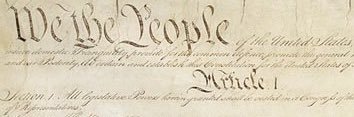 We the People of the United States
insure domestic Tranquility, provide for the common defence, promote the general
and our Posterity, do ordain and establish this Constitution for the United States of
Article. I
Section. 1. All legislative Powers herein granted shall be vested in a Congress of the
of Representatives.